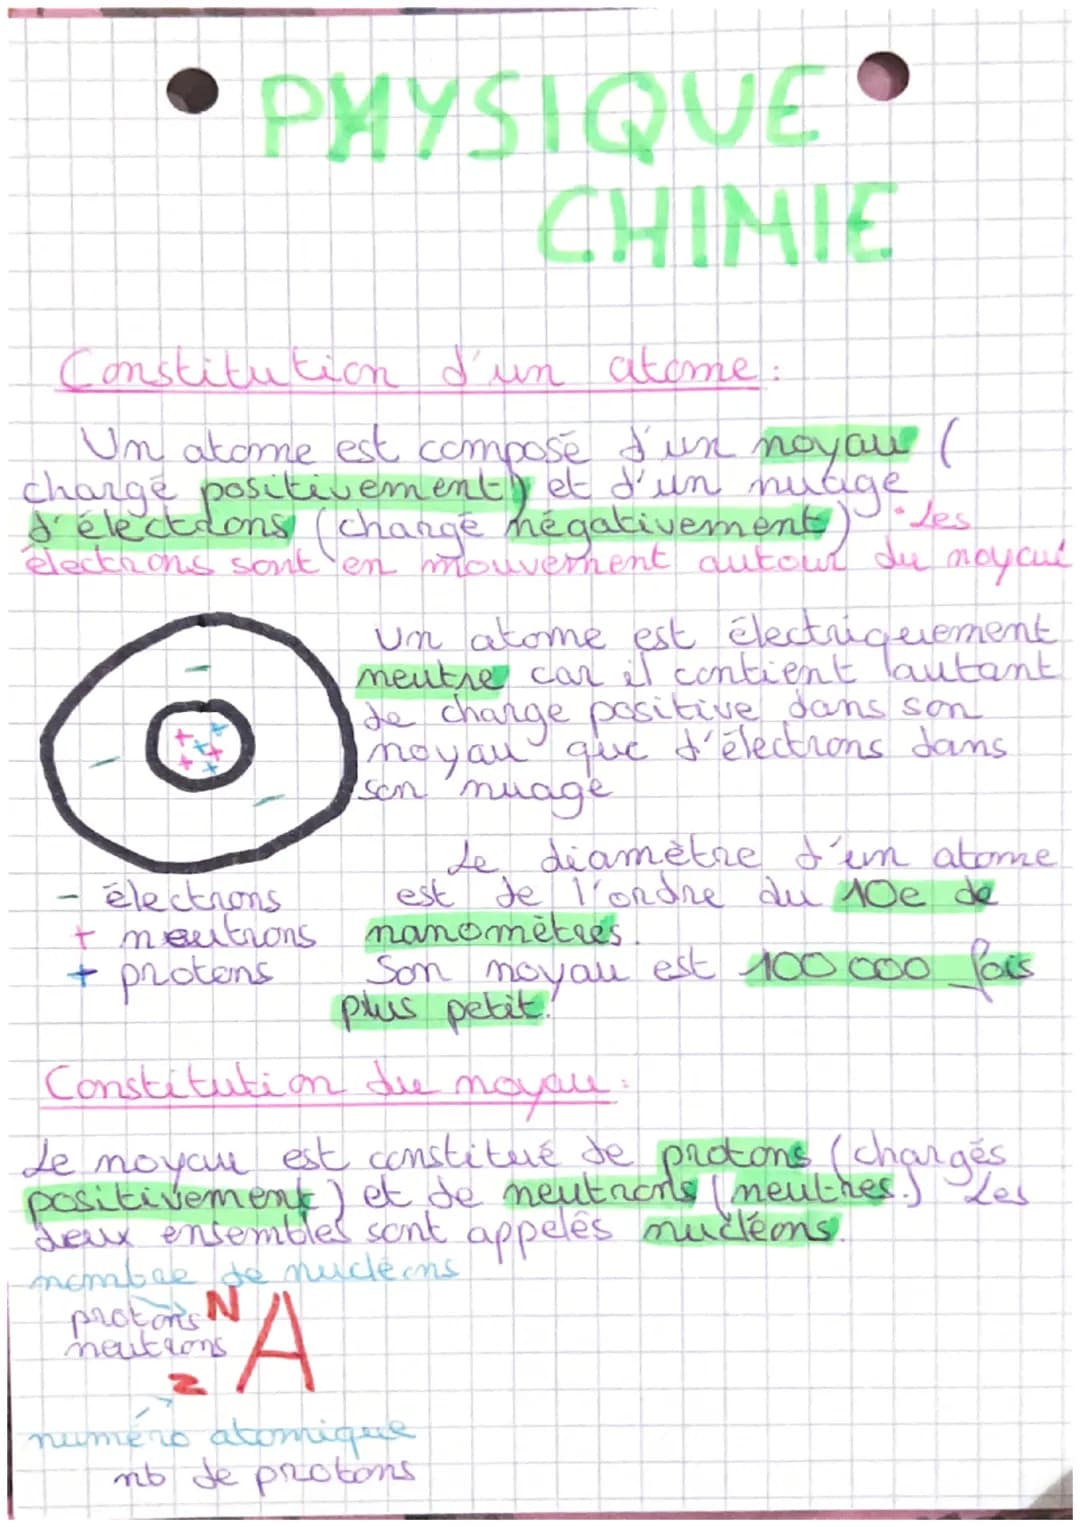 PHYSIQUE
CHIMIE
Constitution d'un atome :
Un atome est composé d'un noyau (
chargé positivement) et d'un nuage
d'électrons (chargé négativement). Les
électrons sont en mouvement autour du noyau
Un atome est électriquement
neutre car il contient autant
de charge positive dans son
noyau que d'électrons dans
son nuage
Le diamètre d'un atome
est de l'ordre du 10e de
nanomètres.
Son noyau est 100 000 fois
plus petit.
- électrons
+ neutrons
+ protons
Constitution du noyau :
Le noyau est constitué de protons (chargés
positivement) et de neutrons (neutres.) Les
deux ensembles sont appelés nucléons.
nombre de nucléons
protons N
neutrons A
Z
numéro atomique
nb de protons